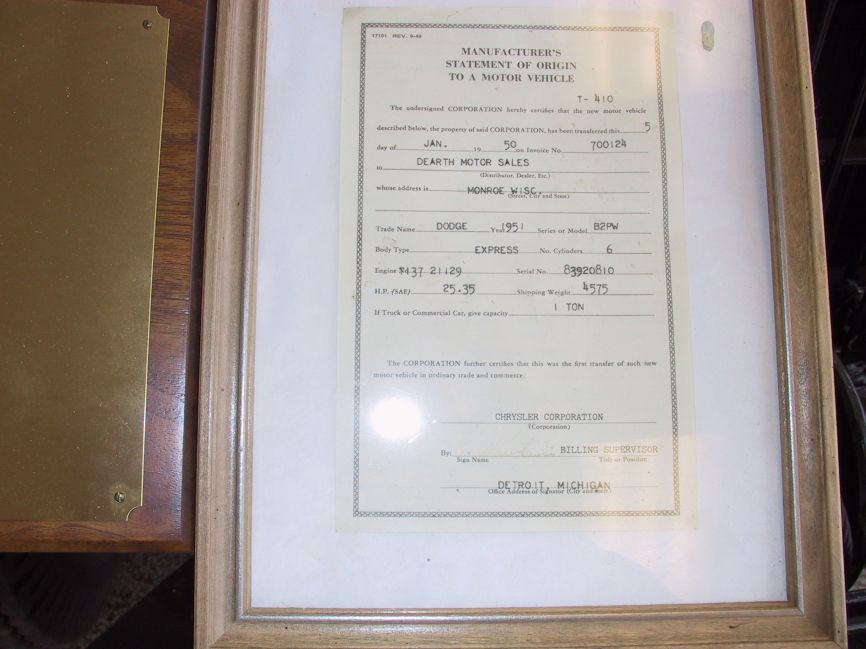 17101 REV. 9-49
MANUFACTURER'S
STATEMENT OF ORIGIN
TO A MOTOR VEHICLE
T- 410
The undersigned CORPORATION hereby certifies that the new motor vehicle
described below, the property of said CORPORATION, has been transferred this 5
day of JAN. 19 50 on Invoice No. 700124
to DEARTH MOTOR SALES
(Distributor, Dealer, Etc.)
whose address is MONROE WISC.
(Street, City and State)
Trade Name DODGE Year 1951 Series or Model B2PW
Body Type EXPRESS No. Cylinders 6
Engine T137 21129 Serial No. 83920810
H.P. (SAE) 25.35 Shipping Weight 4575
If Truck or Commercial Car, give capacity 1 TON
The CORPORATION further certifies that this was the first transfer of such new
motor vehicle in ordinary trade and commerce.
CHRYSLER CORPORATION
(Corporation)
By: BILLING SUPERVISOR
Sign Name Title or Position
DETROIT, MICHIGAN
Office Address of Signator (City and State)